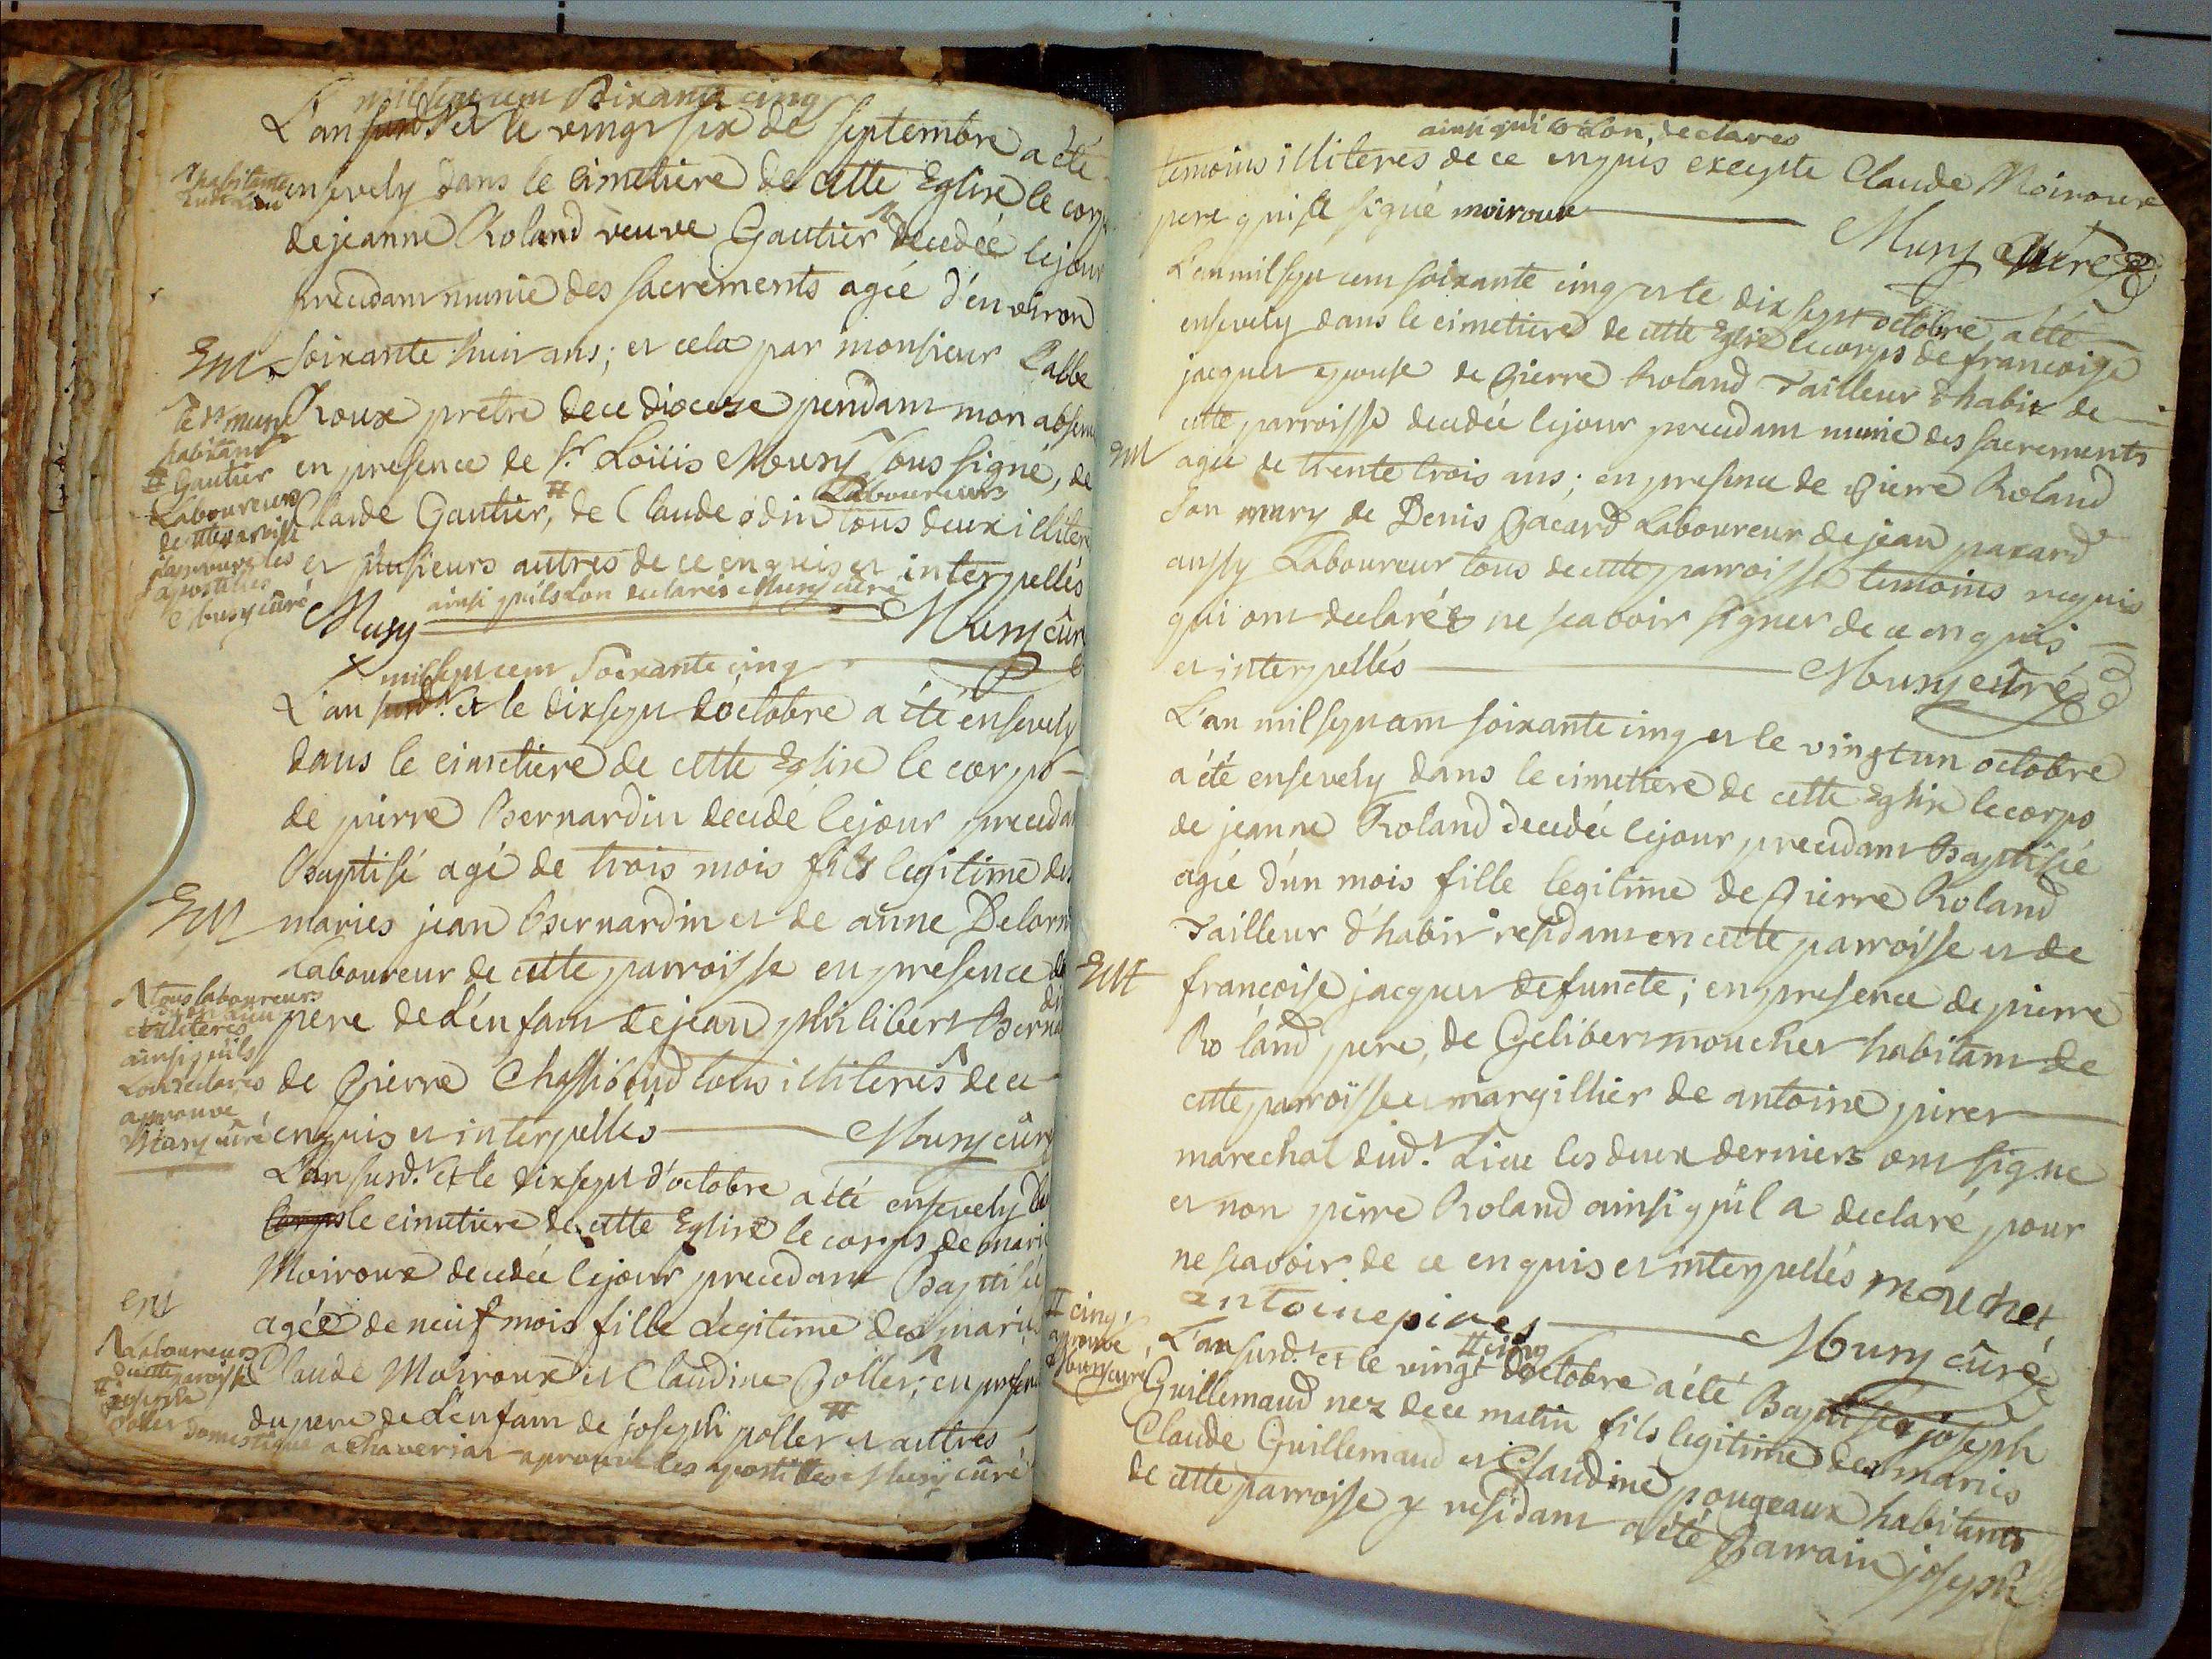 mil sept cent Soixante cinq
L'an susd.t et le vingt six de septembre a été
ensevely dans le cimetiere de cette Eglise le corps
de jeanne Roland veuve Gautier decedée le jour
precedant munie des sacrements agée d'environ
soixante huit ans; et cela par monsieur L'abbe
Roux pretre de ce diocese pendant mon absence
en presence de Sr. Loüis Mury sous signé, de
Claude Gautier, # de Claude odin Laboureurs tous deux illiteres
et plusieurs autres de ce enquis et interpellés
ainsi quils l'on declarés Mury curé
Mury Mury curé
habitante
Em
le Sr mury
habitant
# Gautier
Laboureurs
de cette paroisse
j'approuve les
apostilles
Mury curé
mil sept cent Soixante cinq
L'an susd.t et le dixsept d'octobre a été ensevely
dans le cimetiere de cette Eglise le corps
de pierre Bernardin decedé le jour precedant
Baptisé agé de trois mois fils legitime des
maries jean Bernardin et de anne Delorm
Laboureur de cette parroisse en presence du
pere de L'enfant de jean philibert Bernardin
de Pierre Chassiboud tous illiterés de ce
enquis et interpellés Mury curé
Em
tous laboureurs
illiteres
ainsi quils
L'on declarés
approuve
Mury curé
L'an susd.t et le dixsept d'octobre a été ensevely dans
corps le cimetiere de cette Eglise le corps de marie
Moiroux decedée le jour precedant Baptisée
agée de neuf mois fille Legitime des mariés
Claude Moiroux et Claudine Poller; en presence
du pere de L'enfant de joseph poller # et autres
em
Laboureurs
de cette paroisse
# joseph
Poller domestique a Chaverian aprouve les apostilles Mury curé
ainsi qui L'on declares
temoins illiteres de ce enquis excepte Claude Moiroux
pere qui se signé moiroux Mury Curé
L'an mil sept cent soixante cinq et le dix sept octobre a été
ensevely dans le cimetiere de cette Eglise le corps de francoise
jacquet epouse de Pierre Roland Tailleur d'habit de
cette parroisse decedée le jour precedant munie des sacrements
Em
agée de trente trois ans; en presence de Pierre Roland
son mary de Denis Pacard Laboureur de jean pacard
aussy Laboureur tous de cette parroisse temoins requis
qui ont declarés ne scavoir signer de ce enquis
et interpellés Mury curé
L'an mil sept cent soixante cinq et le vingt un octobre
a été ensevely dans le cimettere de cette Eglise le corps
de jeanne Roland decedée le jour precedant Baptisée
agée d'un mois fille legitime de Pierre Roland
Tailleur d'habit residant en cette parroisse et de
Em
francoise jacquet defuncte; en presence de pierre
Roland pere, de Gelibert mouchet habitant de
cette parroisse et margillier de antoine pirer
marechal dud.t Lieu les deux derniers ont signe
et non pierre Roland ainsi qu'il a declaré pour
ne scavoir de ce enquis et interpellés mouchet
antoine pires Mury curé
# cinq,
approuve
Mury curé
L'an susd.t et le vingt # cinq d'octobre a été Baptisé joseph
Guillemaud nez de ce matin fils legitime des mariés
Claude Guillemaud et Claudine pougeaux habitants
de cette parroisse y residant a été Parrain joseph